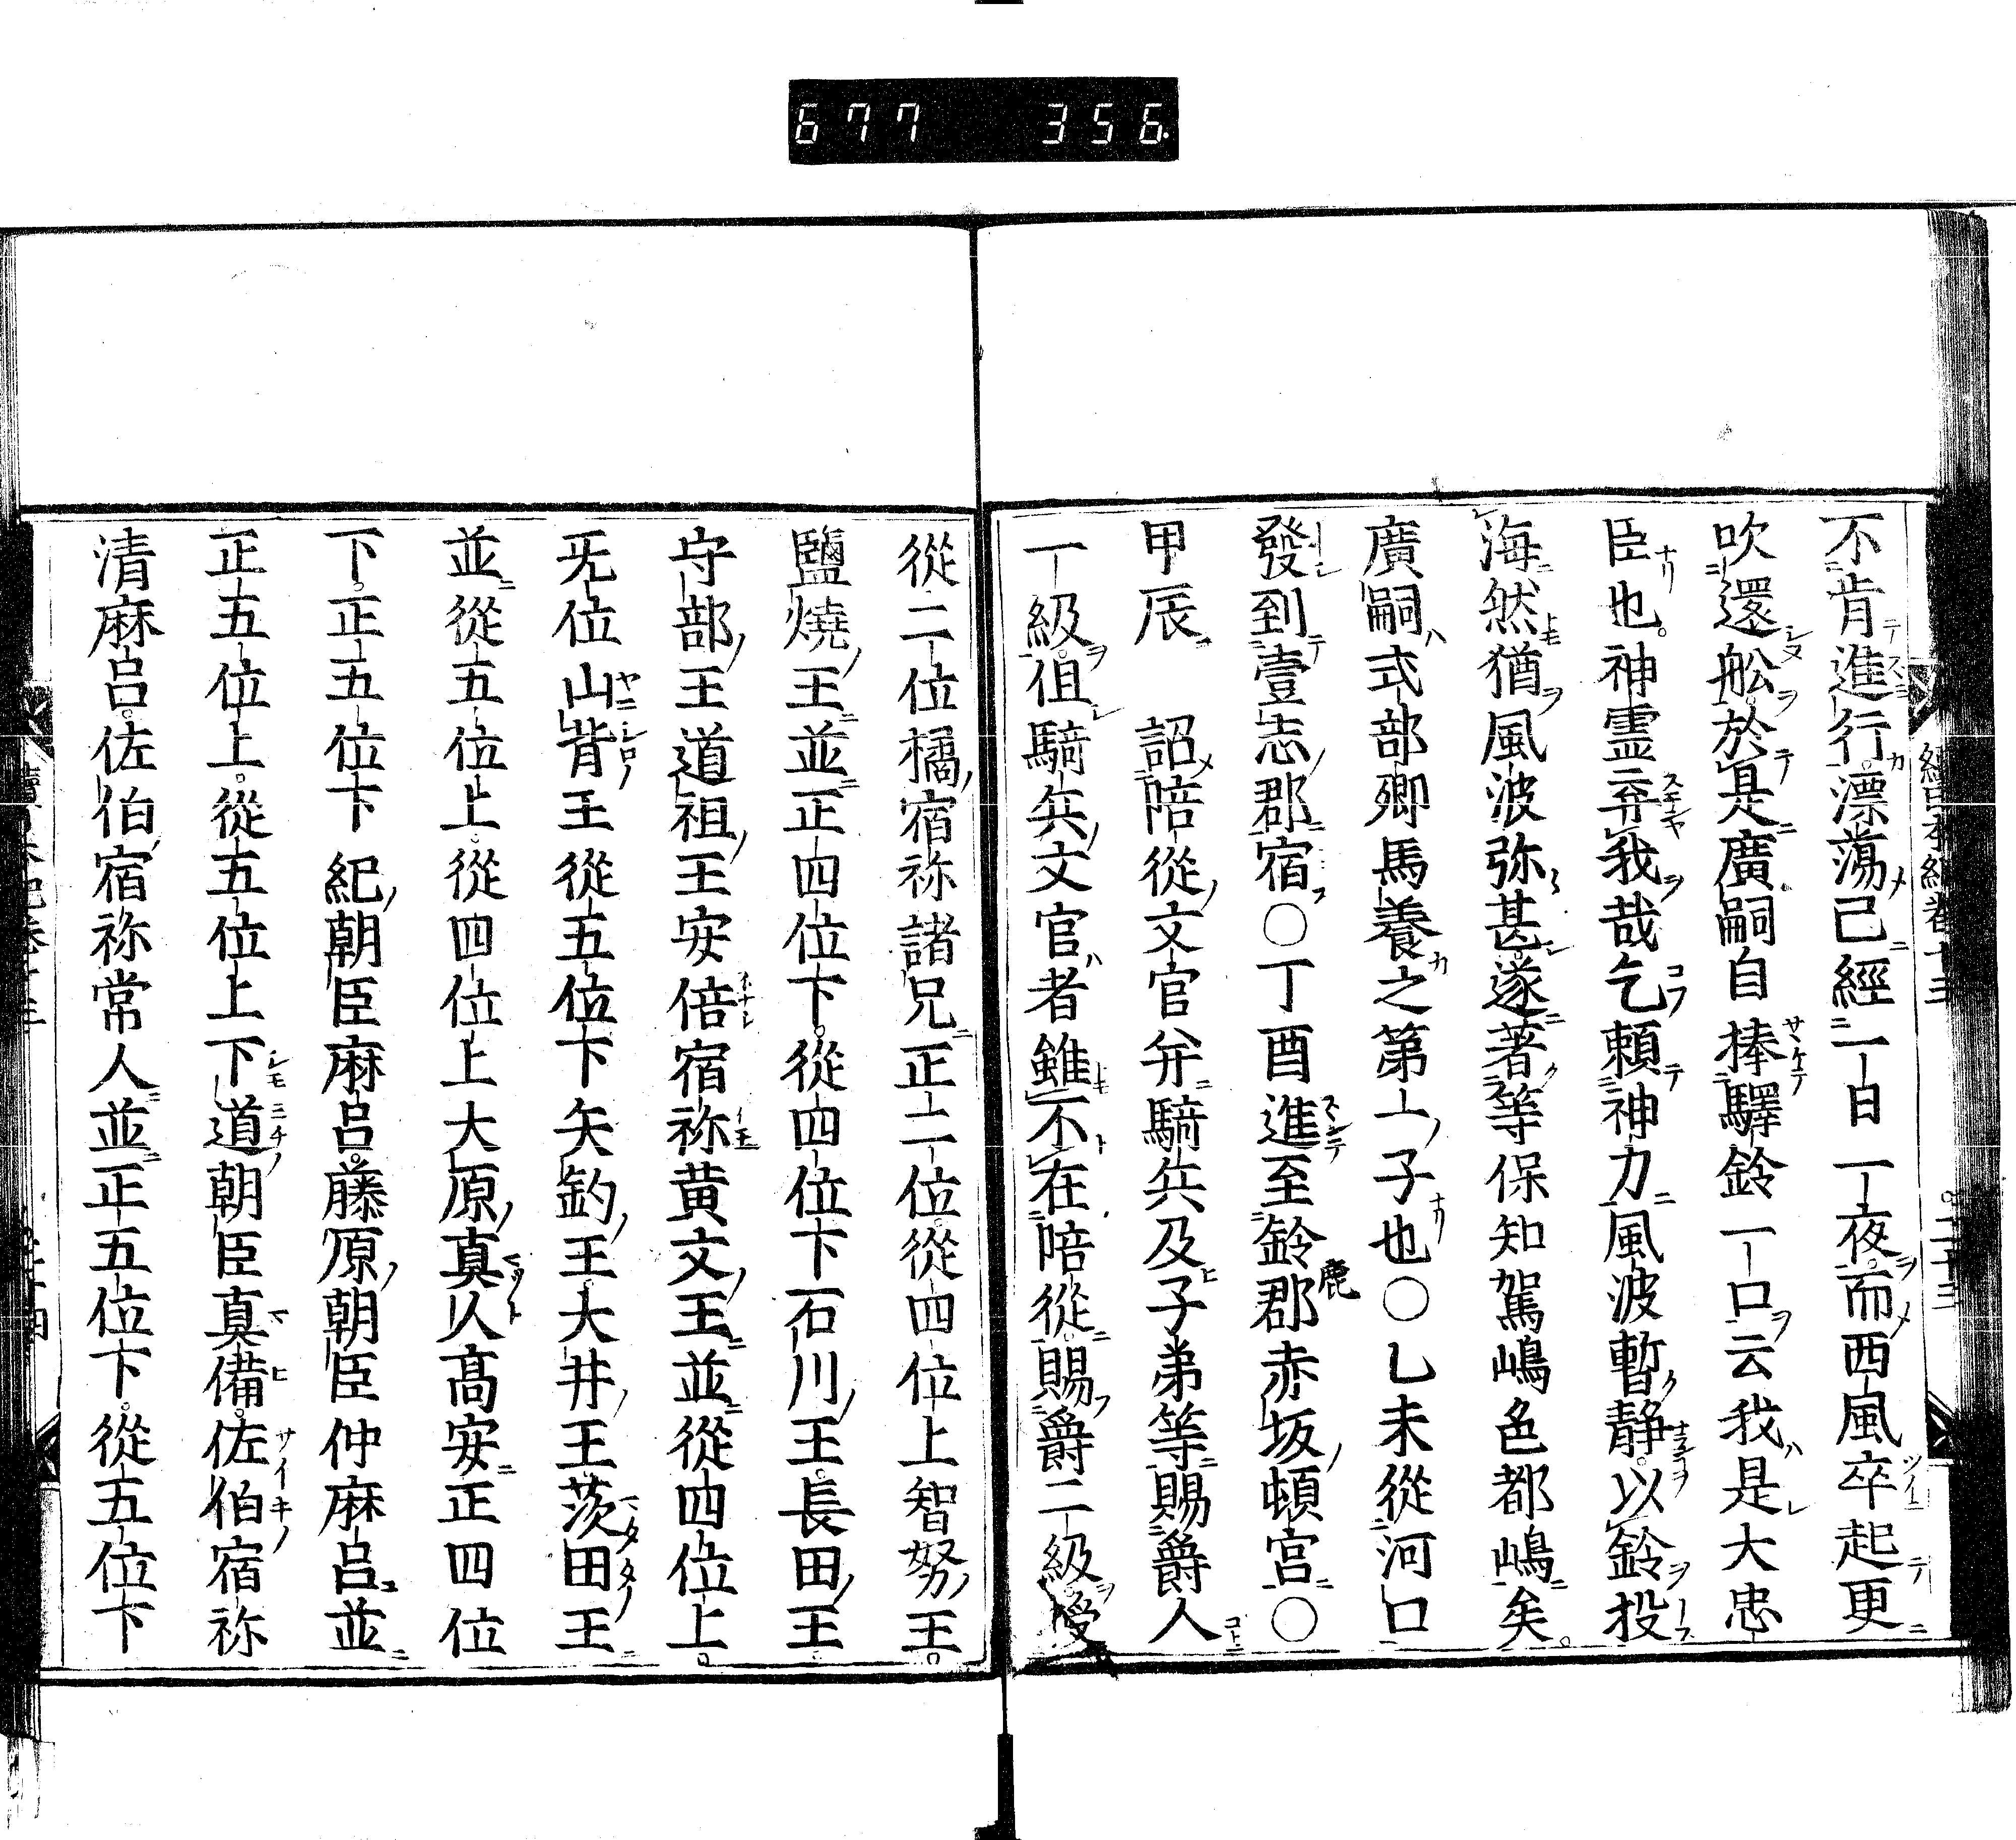 677 356
不肯進行漂蕩已經一日一夜而西風卒起更
吹還舩於是廣嗣自捧驛鈴一口云我是大忠
臣也神霊弃我哉乞頼神力風波暫静以鈴投
海然猶風波弥甚遂著等保知駕嶋色都嶋矣
廣嗣式部卿馬養之第一子也〇乙未從河口
發到壹志郡宿〇丁酉進至鈴鹿郡赤坂頓宮〇
甲辰 詔陪從文官并騎兵及子弟等賜爵人
一級但騎兵父官者雖不在陪從賜爵二級授
從二位橘宿祢諸兄正二位從四位上智努王
鹽燒王並正四位下從四位下石川王長田王
守部王道祖王安倍宿祢黄文王並從四位上
无位山背王從五位下矢釣王大井王茨田王
並從五位上從四位上大原真人髙安正四位
下正五位下紀朝臣麻呂藤原朝臣仲麻呂並
正五位上從五位上下道朝臣真備佐伯宿祢
清麻呂佐伯宿祢常人並正五位下從五位下